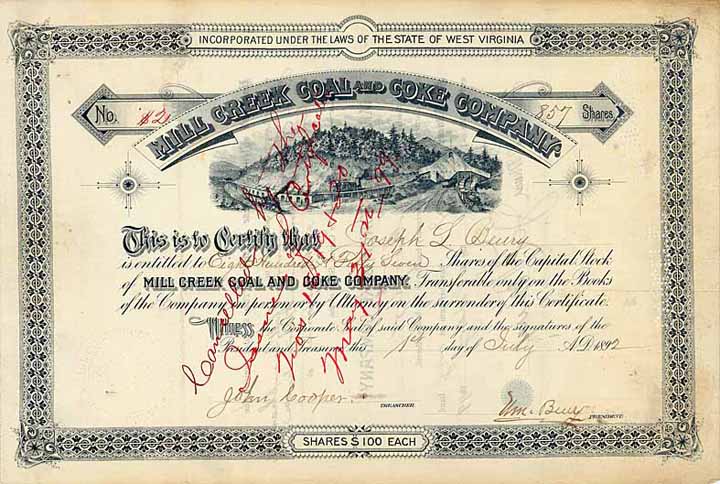 INCORPORATED UNDER THE LAWS OF THE STATE OF WEST VIRGINIA
No. 857 Shares
MILL CREEK COAL AND COKE COMPANY.
This is to Certify that Joseph L Beury
is entitled to Eight Hundred & Fifty Seven Shares of the Capital Stock
of MILL CREEK COAL AND COKE COMPANY. Transferable only on the Books
of the Company in person or by Attorney on the surrender of this Certificate.
Witness the Corporate Seal of said Company and the signatures of the
President and Treasurer this 1st day of July A.D. 1892
John Cooper. TREASURER. Wm. Beury PRESIDENT.
SHARES $100 EACH
Cancelled by the
issue of Certificates
Nos.
May 21st